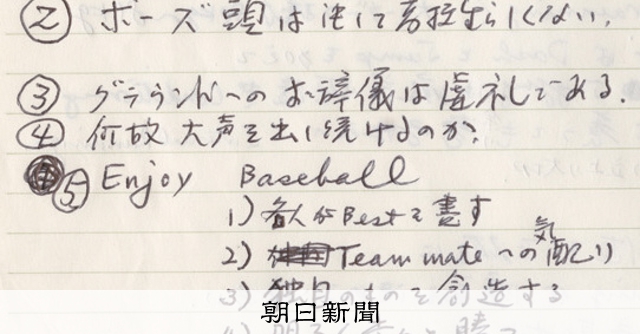 ② ボーズ頭は決して高校生らしくない,
③ グラウンドへのお辞儀は虚礼である.
④ 何故大声を出し続けるのか?
⑤ Enjoy Baseball
1) 各人がBestを盡す
2) Team mateへの気配り
3) 独自のものを創造する
朝日新聞